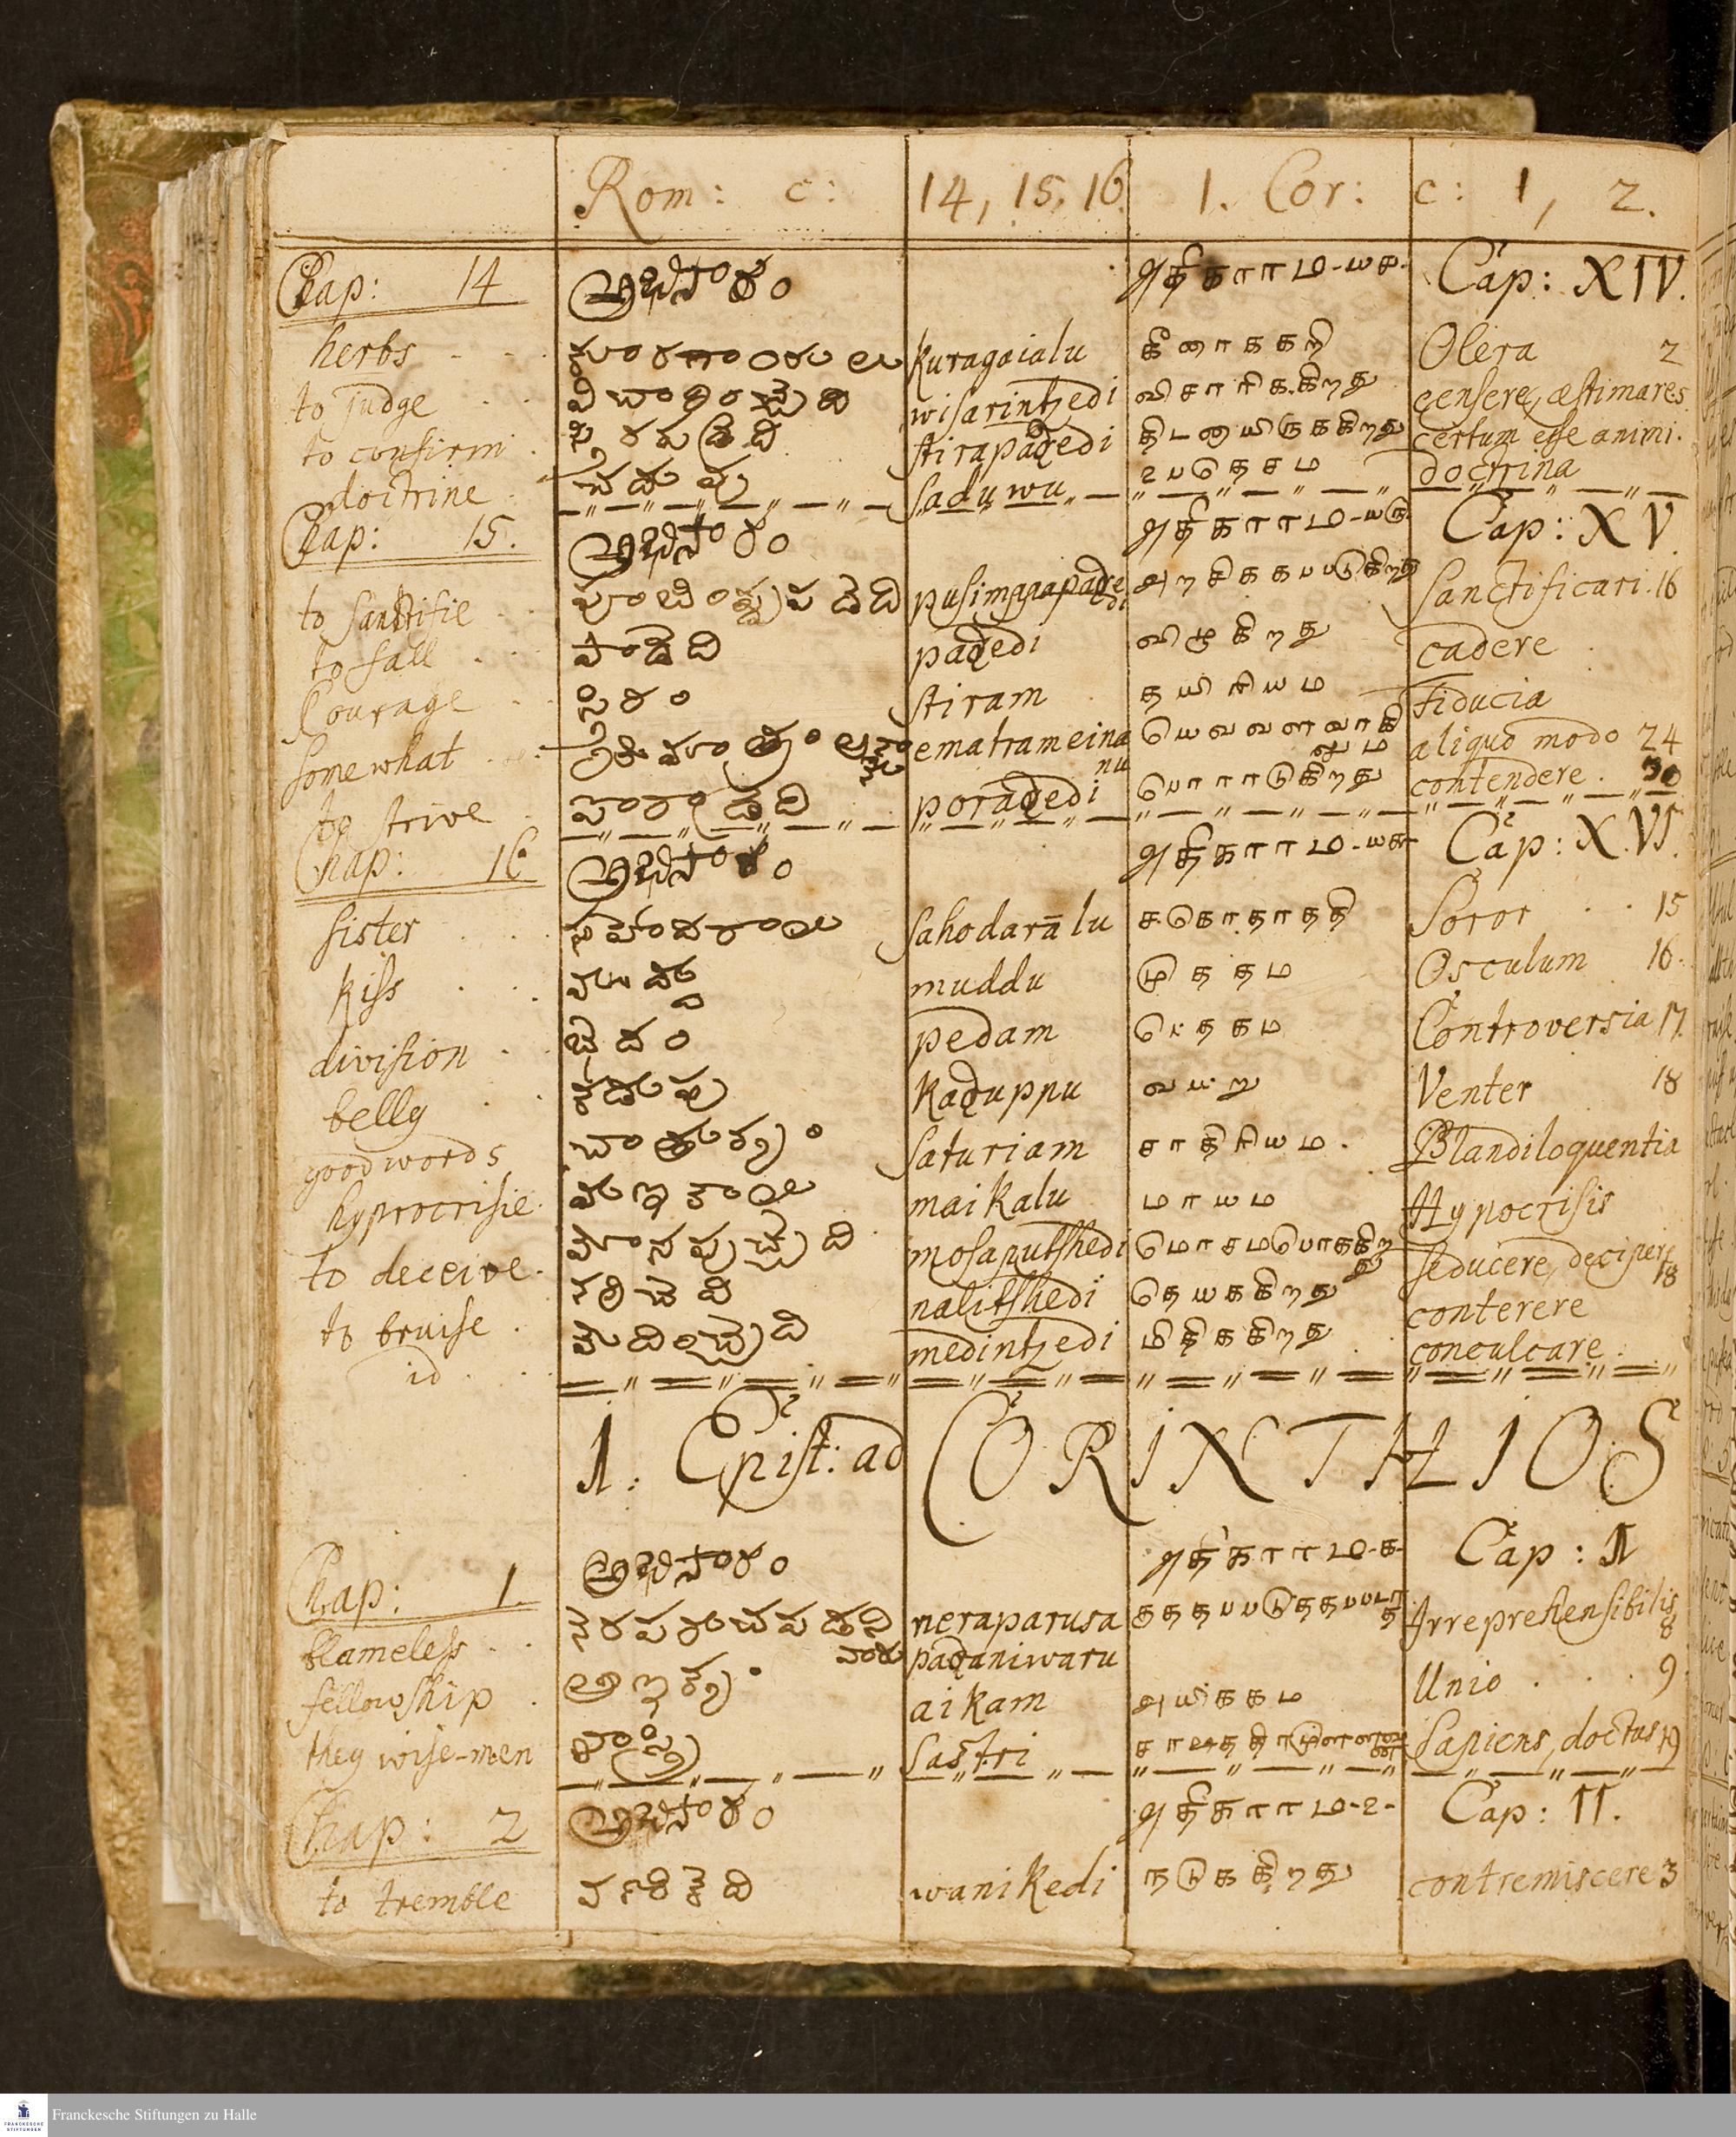 Rom: c: 14, 15, 16. 1. Cor: c: 1, 2.
Chap: 14 అధికారం அதிகாரம-யச- Cap: XIV.
herbs కూరగాయలు kuragaialu கீளாககறி Olera 2
to judge విచారించ్చెది wisarintzedi விசாரிககிறது censere, æstimare 5.
to confirm స్తిరపడ్రెది stirapadedi திடனாயிருககிறது certum esse animi.
doctrine సదువు saduwu உபதேசம doctrina
Chap: 15. అధికారం அதிகாரம-யரு. Cap: XV.
to sanctifie పడెది அறசிககபபடுகிறது Sanctificari. 16
to fall పాడెది padedi விழுகிறது cadere
Courage స్తిరం stiram தயிரியம Fiducia
somewhat ematrameina aliquo modo 24
nu
to strive పోరాడ్రెది poradedi போராடுகிறது contendere. 30
Chap: 16 అధికారం அதிகாரம-யசு Cap: XVI.
sister సహోదరాలు sahodarālu சகோதரததி Soror 15
kiss ముద్దు muddu முததம Osculum 16.
division భెదం pedam பெதகம Controversia 17.
belly కడుపు kaduppu வயறு Venter 18
good words చాతుర్యం saturiam சாதிரியம. Blandiloquentia
hyprocrisie. మాఇకాలు maikalu மாயம Hypocrisis
to deceive. మోసపుచ్చెది mosaputshedi மொசமபொககிறது Seducere, decipere 18
to bruise. నలిచెది nalitshedi தெயககிறது conterere
id. మెదించ్చ్రెది medintzedi மிதிககிறது conculcare.
1. Epist: ad CORINTHIOS
Chap: 1. అధికారం அதிகாரம-க- Cap: 1
blameless నెరపరుచపడాని neraparusa Irreprehensibilis 8
వారు padaniwaru
fellowship అఇక్యం aikam அயிககம Unio 9.
they wise-men శాస్త్రి sastri Sapiens, doctus 19
Chap: 2 అధికారం அதிகாரம-உ- Cap: II.
to tremble వణికెది wanikedi நடுககிறது contremiscere 3
Franckesche Stiftungen zu Halle